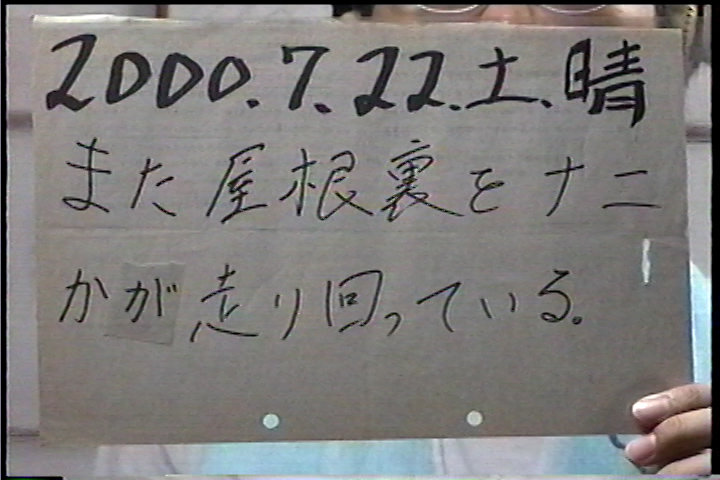 2000.7.22.土.晴
また屋根裏をナニ
かが走り回っている。